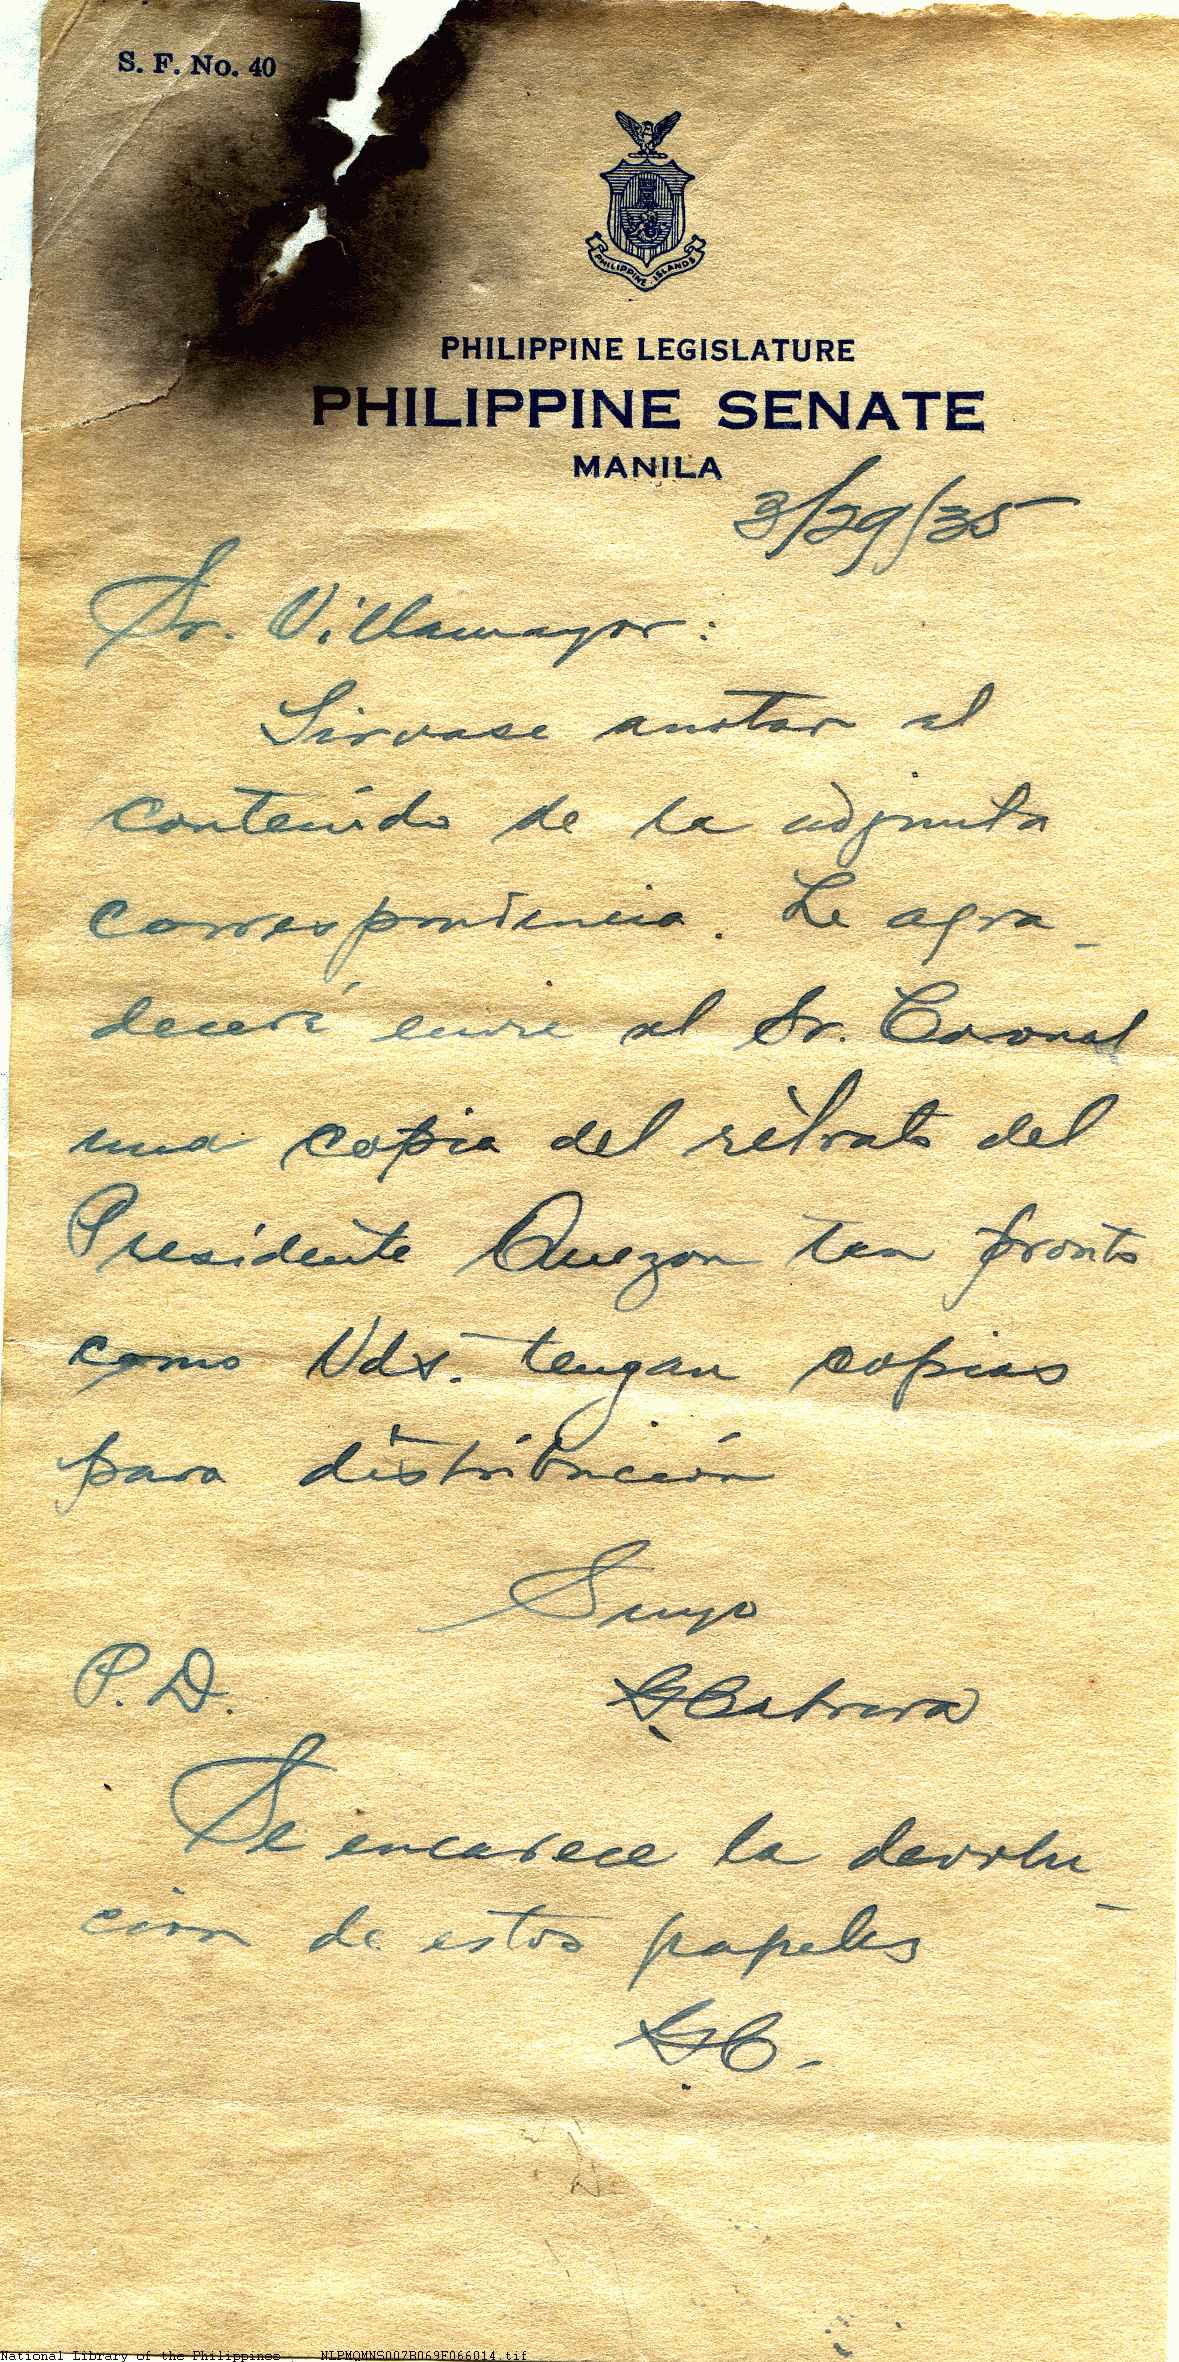 S. F. No. 40
PHILIPPINE ISLANDS
PHILIPPINE LEGISLATURE
PHILIPPINE SENATE
MANILA
3/29/35
Sr. Villamayor:
Sirvase anotar el
contenido de la adjunta
correspondencia. Le agra-
deceré envie al Sr. Coronal
una copia del retrato del
Presidente Quezon tan pronto
como Vds. tengan copias
para distribución
Suyo
P.D.
GCabrera
Se encarece la devolu-
ción de estos papeles
GC.
National Library of the Philippines NLPMQMNS007B069F066014.tif